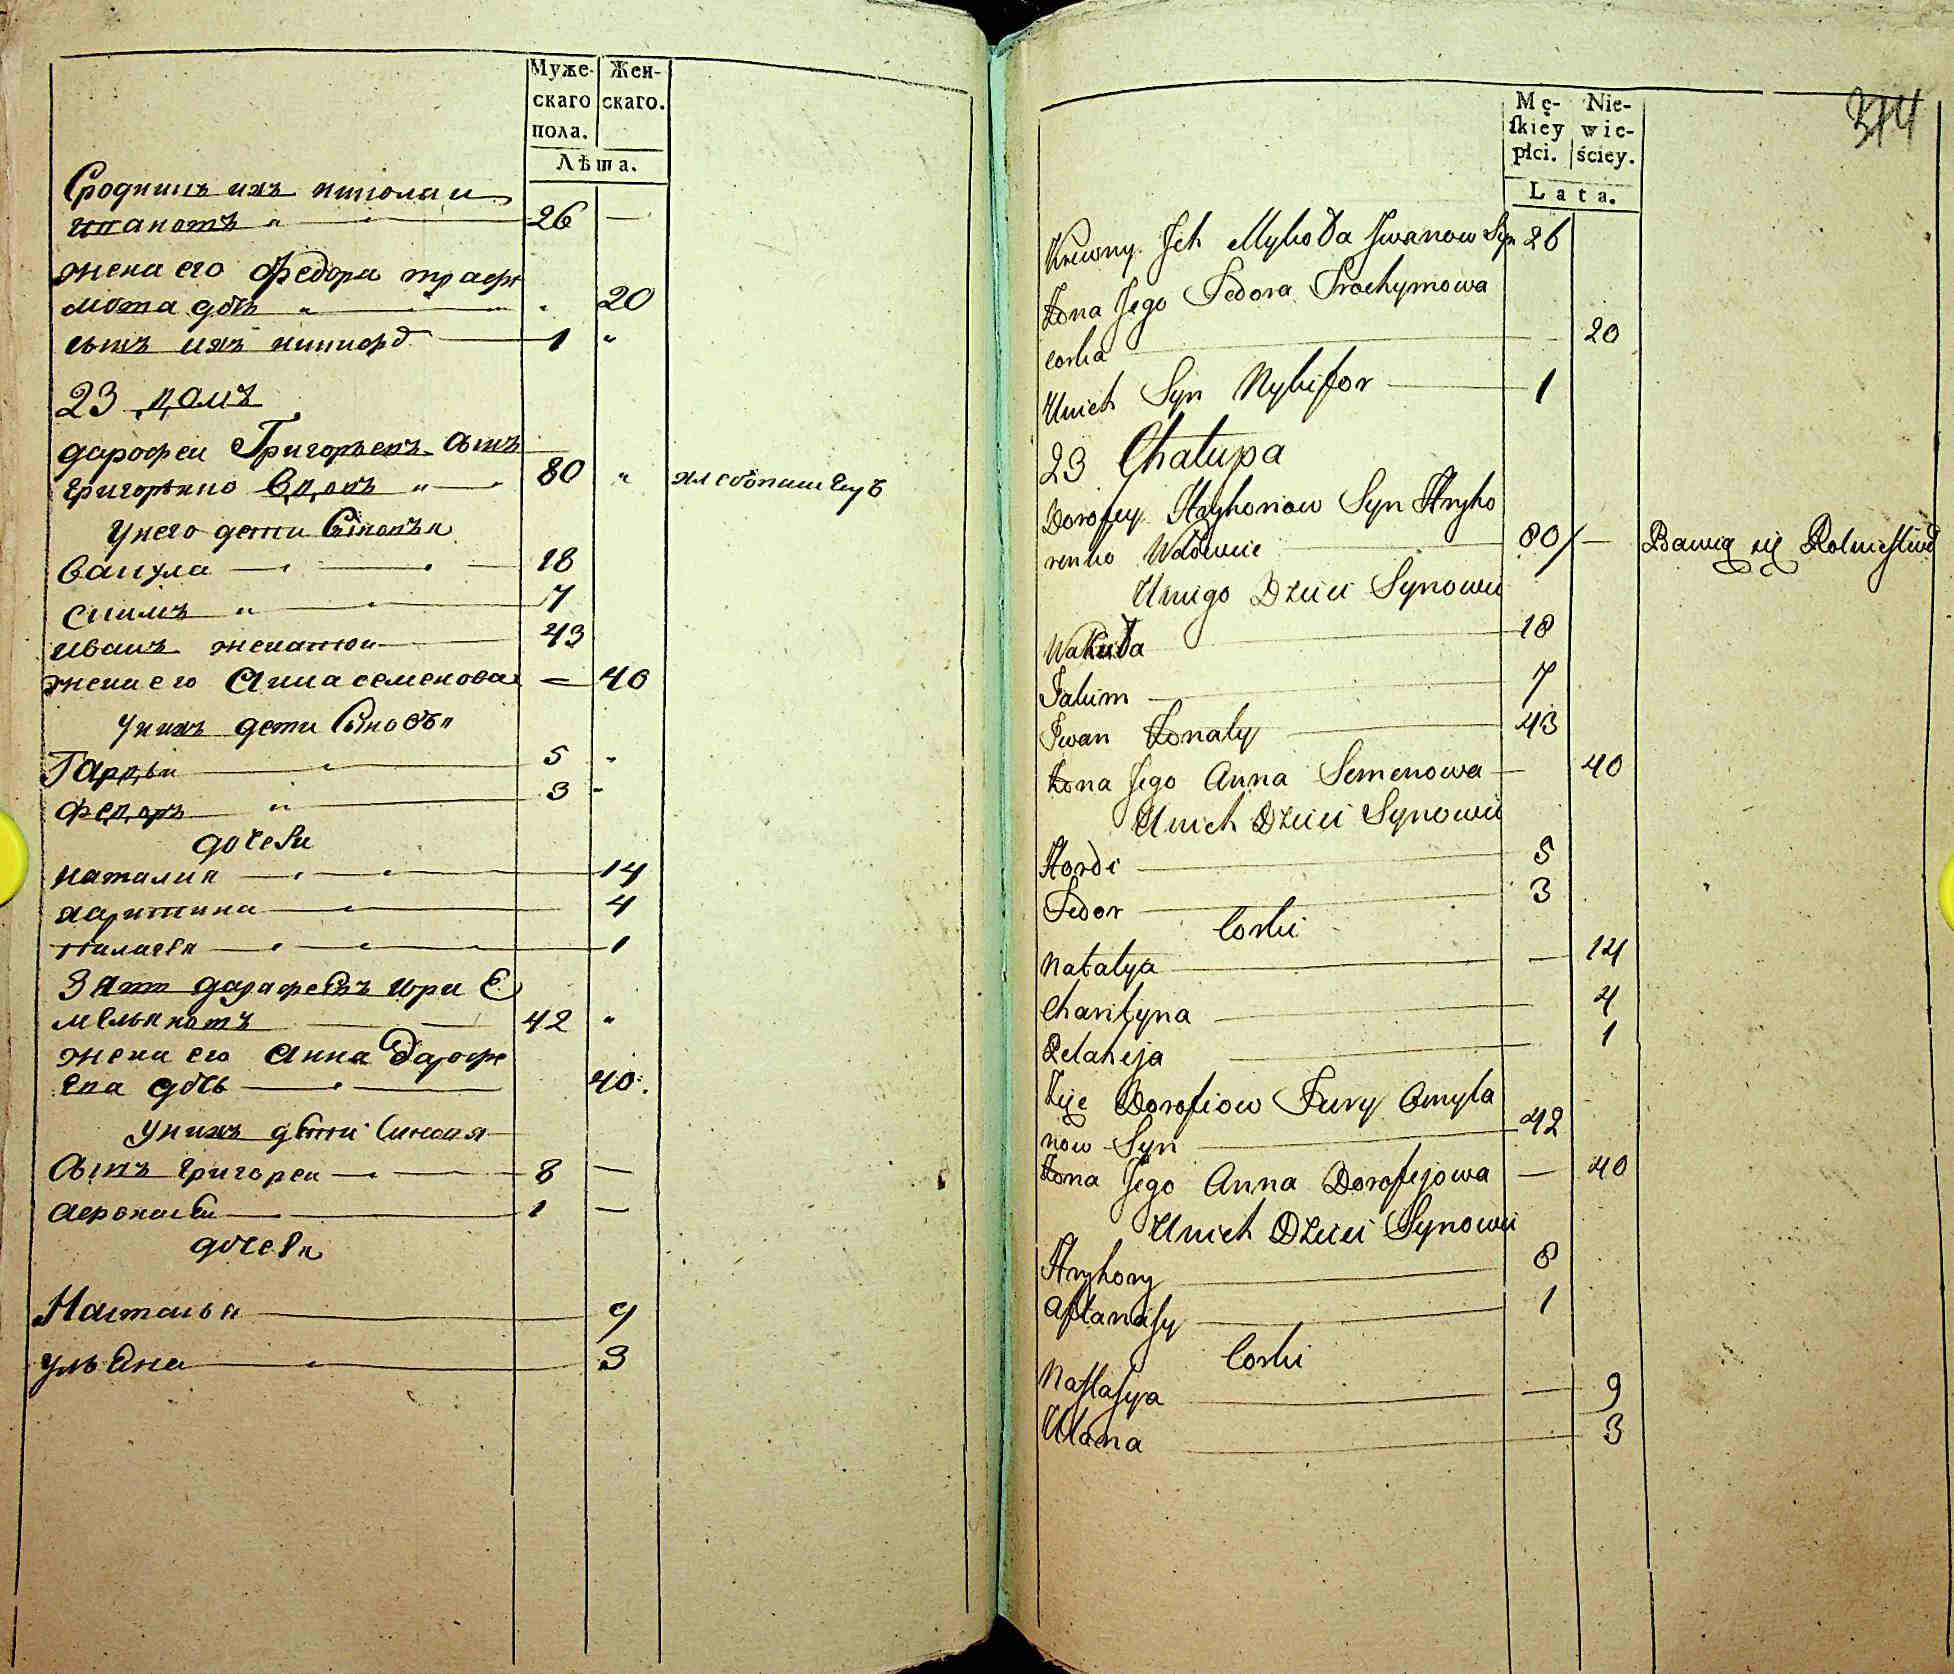 Муже- Жен-
скаго скаго.
пола.
Лѣта.
Сродникъ ихъ николаи
ивановъ 26 —
жена его Федора трафи
мова дочь 20
сынъ ихъ никифор 1
23 домъ
дарофеи Григорьевъ сынъ
григоренко вдовъ 80 хлебопашецъ
у него дети Сыновья
Вакула 18
екимъ 7
иванъ женатои 43
жена его Анна семенова — 40
у нихъ дети Сыновья
Гардѣи 5
Федоръ 3
дочери
наталия 14
харитина 4
пилагея 1
Зять дарофеевъ юри Е
мельяновъ 42
жена его Анна дарофе
ева дочь 40
у нихъ дети
Сынъ григореи 8 —
афонасеи 1 —
дочери
Настасья 9
ульяна 3
Mę- Nie-
skiey wie-
płci. ściey.
Lata.
314
Krewny Jch Mykoła Jwanow Syn 26
Żona Jego Fedora Trochymowa
corka 20
Unich Syn Nykifor 1
23 Chałupa
Dorofey Hryhoriow Syn Hryho
renko Wdowiec 80 — Bawią się Rolnictwem
Uniego Dzieci Synowie
Wakuła 18
Jakim 7
Jwan Żonaty 43
Żona Jego Anna Semenowa — 40
Unich Dzieci Synowie
Hordi 5
Fedor 3
Corki
Natalya — 14
Charityna 4
Pelaheja 1
Zięc Dorofiow Jury Omyla
now Syn 42
Żona Jego Anna Dorofejowa — 40
Unich Dzieci Synowie
Hryhory 8
Aftanasy 1
Corki
Nastasya — 9
Ulana 3